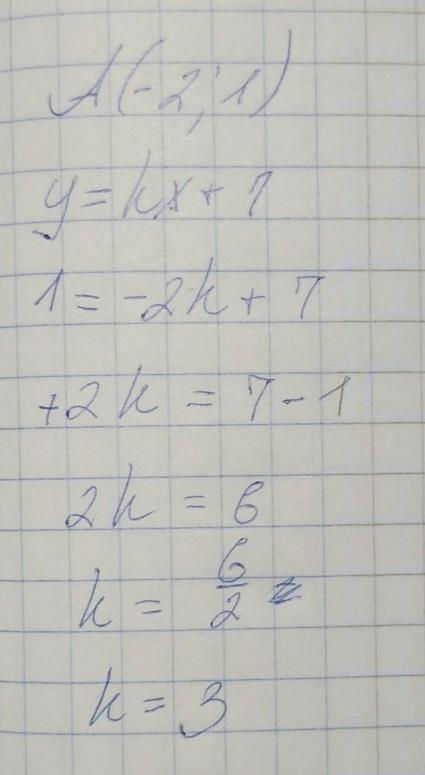 A(-2; 1)
y = kx + 7
1 = -2k + 7
+2k = 7 - 1
2k = 6
k = 6/2
k = 3